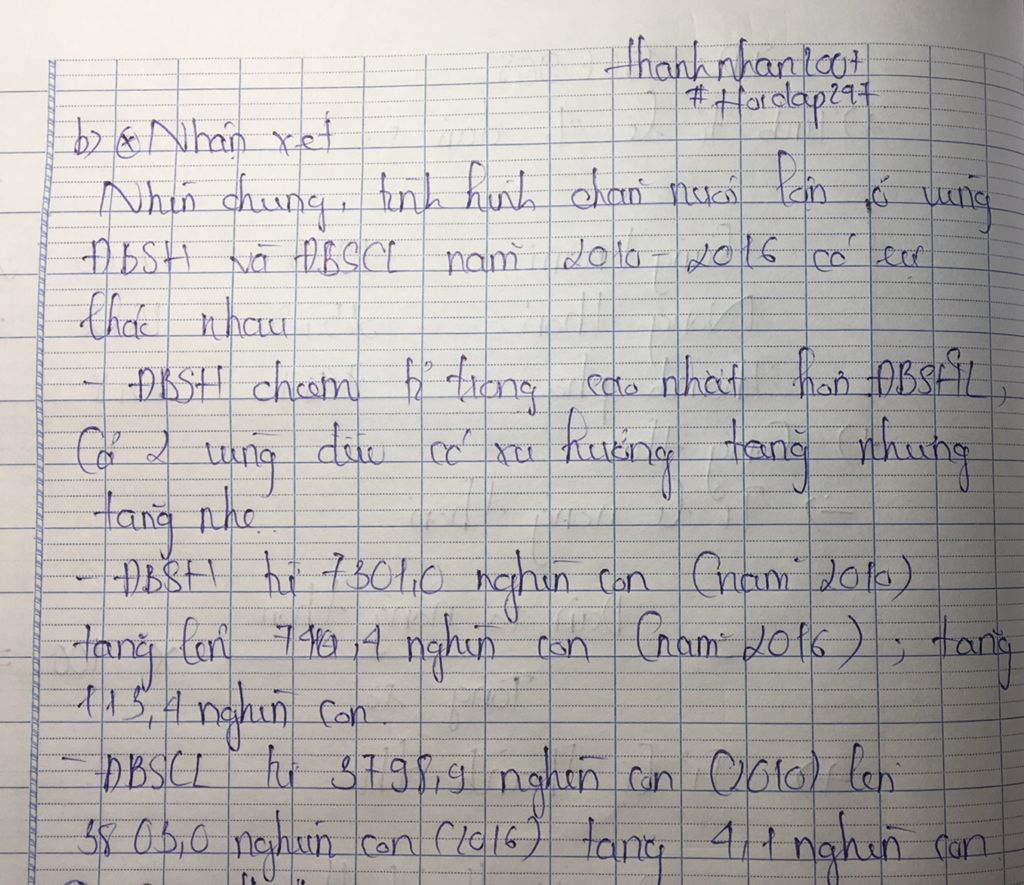 thanhnhan2007
#Hoidap247
b) * Nhận xét
Nhìn chung, tình hình chăn nuôi lợn ở vùng
ĐBSH và ĐBSCL năm 2010-2016 có sự
khác nhau
- ĐBSH chiếm tỉ trọng cao nhất hơn ĐBSCL,
Cả 2 vùng đều có xu hướng tăng nhưng
tăng nhẹ.
- ĐBSH từ 7301,0 nghìn con (năm 2010)
tăng lên nghìn con (năm 2016); tăng
113,4 nghìn con.
- ĐBSCL từ 3798,9 nghìn con (2010) lên
3803,0 nghìn con (2016) tăng 4,1 nghìn con